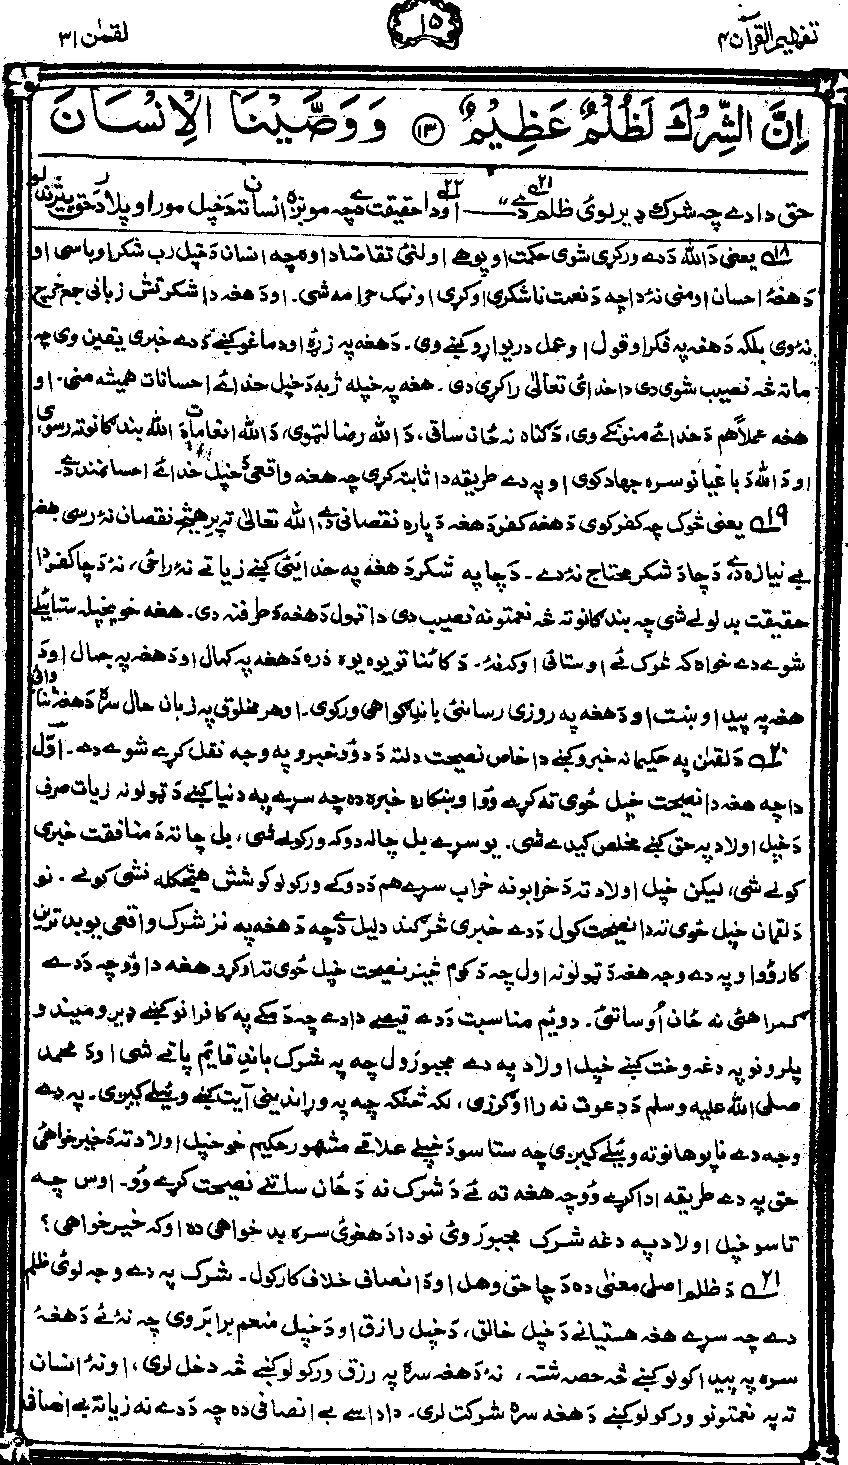 تفهیم القرآن ۴
۱۵
لقمٰن ۳۱
اِنَّ الشِّرْكَ لَظُلْمٌ عَظِیْمٌ ﴿۱۳﴾ وَوَصَّیْنَا الْاِنْسَانَ
حق دادے چہ شرک ډیر لوئ ظلم دے ۲۱ــــ ۲۲ اودا حقیقت دے چہ مونږہ انسان تہ دَ خپل مور او پلار دَ حق
۱۸ــہ یعنی دَ اللہ دَدے ورکړی شوی حکمت او پوهے اولنئ تقاضا دا وہ چہ انسان دَ خپل رب شکر اوباسی او
دَ هغہٗ احسان اومنی نہ داچہ دَ نعمت ناشکری اوکړی او نمک حرامه شی۔ اودَ هغہ دا شکر تش زبانی جمع خرچ
نہ وی بلکہ دَ هغہ پہ فکر او قول او عمل دریواړو کښے وی۔ دَ هغہ پہ زړہ او دماغو کښے دَدے خبری یقین وی چہ
ماتہ څہ نصیب شوی دی دا خدائ تعالیٰ راکړی دی۔ هغہ پہ خپلہ ژبہ دَ خپل خدائے احسانات همیشه منی۔ او
هغہ عملاً هم دَ خدائے منونکے وی، دَ ګناہ نہ ځان ساتی، دَ اللہ رضا لټوی، دَ اللہ انعامات دَ اللہ بندګانو تہ رسوی
او دَ اللہ دَ باغیانو سرہ جهاد کوی او پہ دے طریقہ دا ثابتہ کړی چہ هغہ واقعی دَ خپل خدائے احسانمند دے۔
۱۹ــہ یعنی څوک چہ کفر کوی دَ هغہ کفر دَ هغہ دَ پارہ نقصانی دے، اللہ تعالیٰ تہ پرے هیڅ نقصان نہ رسی هغہ
بے نیازہ دے، دَ چا دَ شکر محتاج نہ دے۔ دَ چا پہ شکر دَ هغہ پہ خدایئی کښے زیاتے نہ راځی، نہ دَ چا کفر دا
حقیقت بدلولے شی چہ بندګانو تہ څہ نعمتونہ نصیب دی دا ټول دَ هغہ دَ طرفنہ دی۔ هغہ خو پخپلہ ستایلے
شوے دے خواہ کہ څوک ئے اوستائی اوکہ نہ۔ دَ کائنات یوہ یوہ ذرہ دَ هغہ پہ کمال او دَ هغہ پہ جمال او دَ
هغہ پہ پیداوښت او دَ هغہ پہ روزی رسانئ باندِ ګواهی ورکوی۔ اوهر مخلوق پہ زبان حال سرہ دَ هغہ ثنا وائی
۲۰ــہ دَ لقمٰن پہ حکیمانہ خبرو کښے دا خاص نصیحت دلتہ دَ دوؤ خبرو پہ وجہ نقل کړے شوے دے۔ اوّل
داچہ هغہ دا نصیحت خپل ځوی تہ کړے وو او ښکارہ خبرہ دہ چہ سړے پہ دنیا کښے دَ ټولو نہ زیات صرف
دَ خپل اولاد پہ حق کښے مخلص کیدے شی۔ یو سړے بل چالہ دوکہ ورکولے شی، بل چاتہ دَ منافقت خبری
کولے شی، لیکن خپل اولاد تہ دَ خرابونہ خراب سړے هم دَ دوکے ورکولو کوشش هیڅکلہ نشی کولے۔ نو
دَ لقمان خپل ځوی تہ دا نصیحت کول دَدے خبری څرګند دلیل دے چہ دَ هغہ پہ نز شرک واقعی یو بدترین
کار وُو او پہ دے وجہ هغہ دَ ټولو نہ اول چہ دَ کوم څیز نصیحت خپل ځوی تہ اوکړو هغہ دا وُو چہ دَ دے
ګمراهئی نہ ځان اوساتئ۔ دوئم مناسبت دَدے قیصے دادے چہ دَ مکے پہ کافرانو کښے ډیرو میندو
پلرونو پہ دغہ وخت کښے خپل اولاد پہ دے مجبورَول چہ پہ شرک باندِ قایٔم پاتے شی او دَ محمد
صلی اللہ علیہ وسلم دَ دعوت نہ را اوګرزی، لکہ څنګہ چہ پہ وړاندینی آیت کښے وئیلے کیږی۔ پہ دے
وجہ دے ناپوهانو تہ وئیلے کیږی چہ ستاسو دَ خپلے علاقے مشهور حکیم خو خپل اولاد تہ دَ خیرخواهئ
حق پہ دے طریقہ ادا کړے وُو چہ هغہ تہ ئے دَ شرک نہ دَ ځان ساتنے نصیحت کړے وُو۔ اوس چہ
تاسو خپل اولاد پہ دغہ شرک مجبورَوئ نو دا دَ هغوئ سرہ بدخواهی دہ اوکہ خیرخواهی؟
۲۱ــہ دَ ظلم اصلی معنیٰ دہ دَ چا حق وهل او دَ انصاف خلاف کار کول۔ شرک پہ دے وجہ لوئ ظلم
دے چہ سړے هغہ هستیانے دَ خپل خالق، دَ خپل رازق او دَ خپل منعم برابروی چہ نہ ئے دَ هغہٗ
سرہ پہ پیدا کولو کښے څہ حصہ شتہ، نہ دَ هغہ سرہ پہ رزق ورکولو کښے څہ دخل لری، اونہ انسان
تہ پہ نعمتونو ورکولو کښے دَ هغہ سرہ شرکت لری۔ دا داسے بے انصافی دہ چہ دَدے نہ زیاتہ بے انصافی